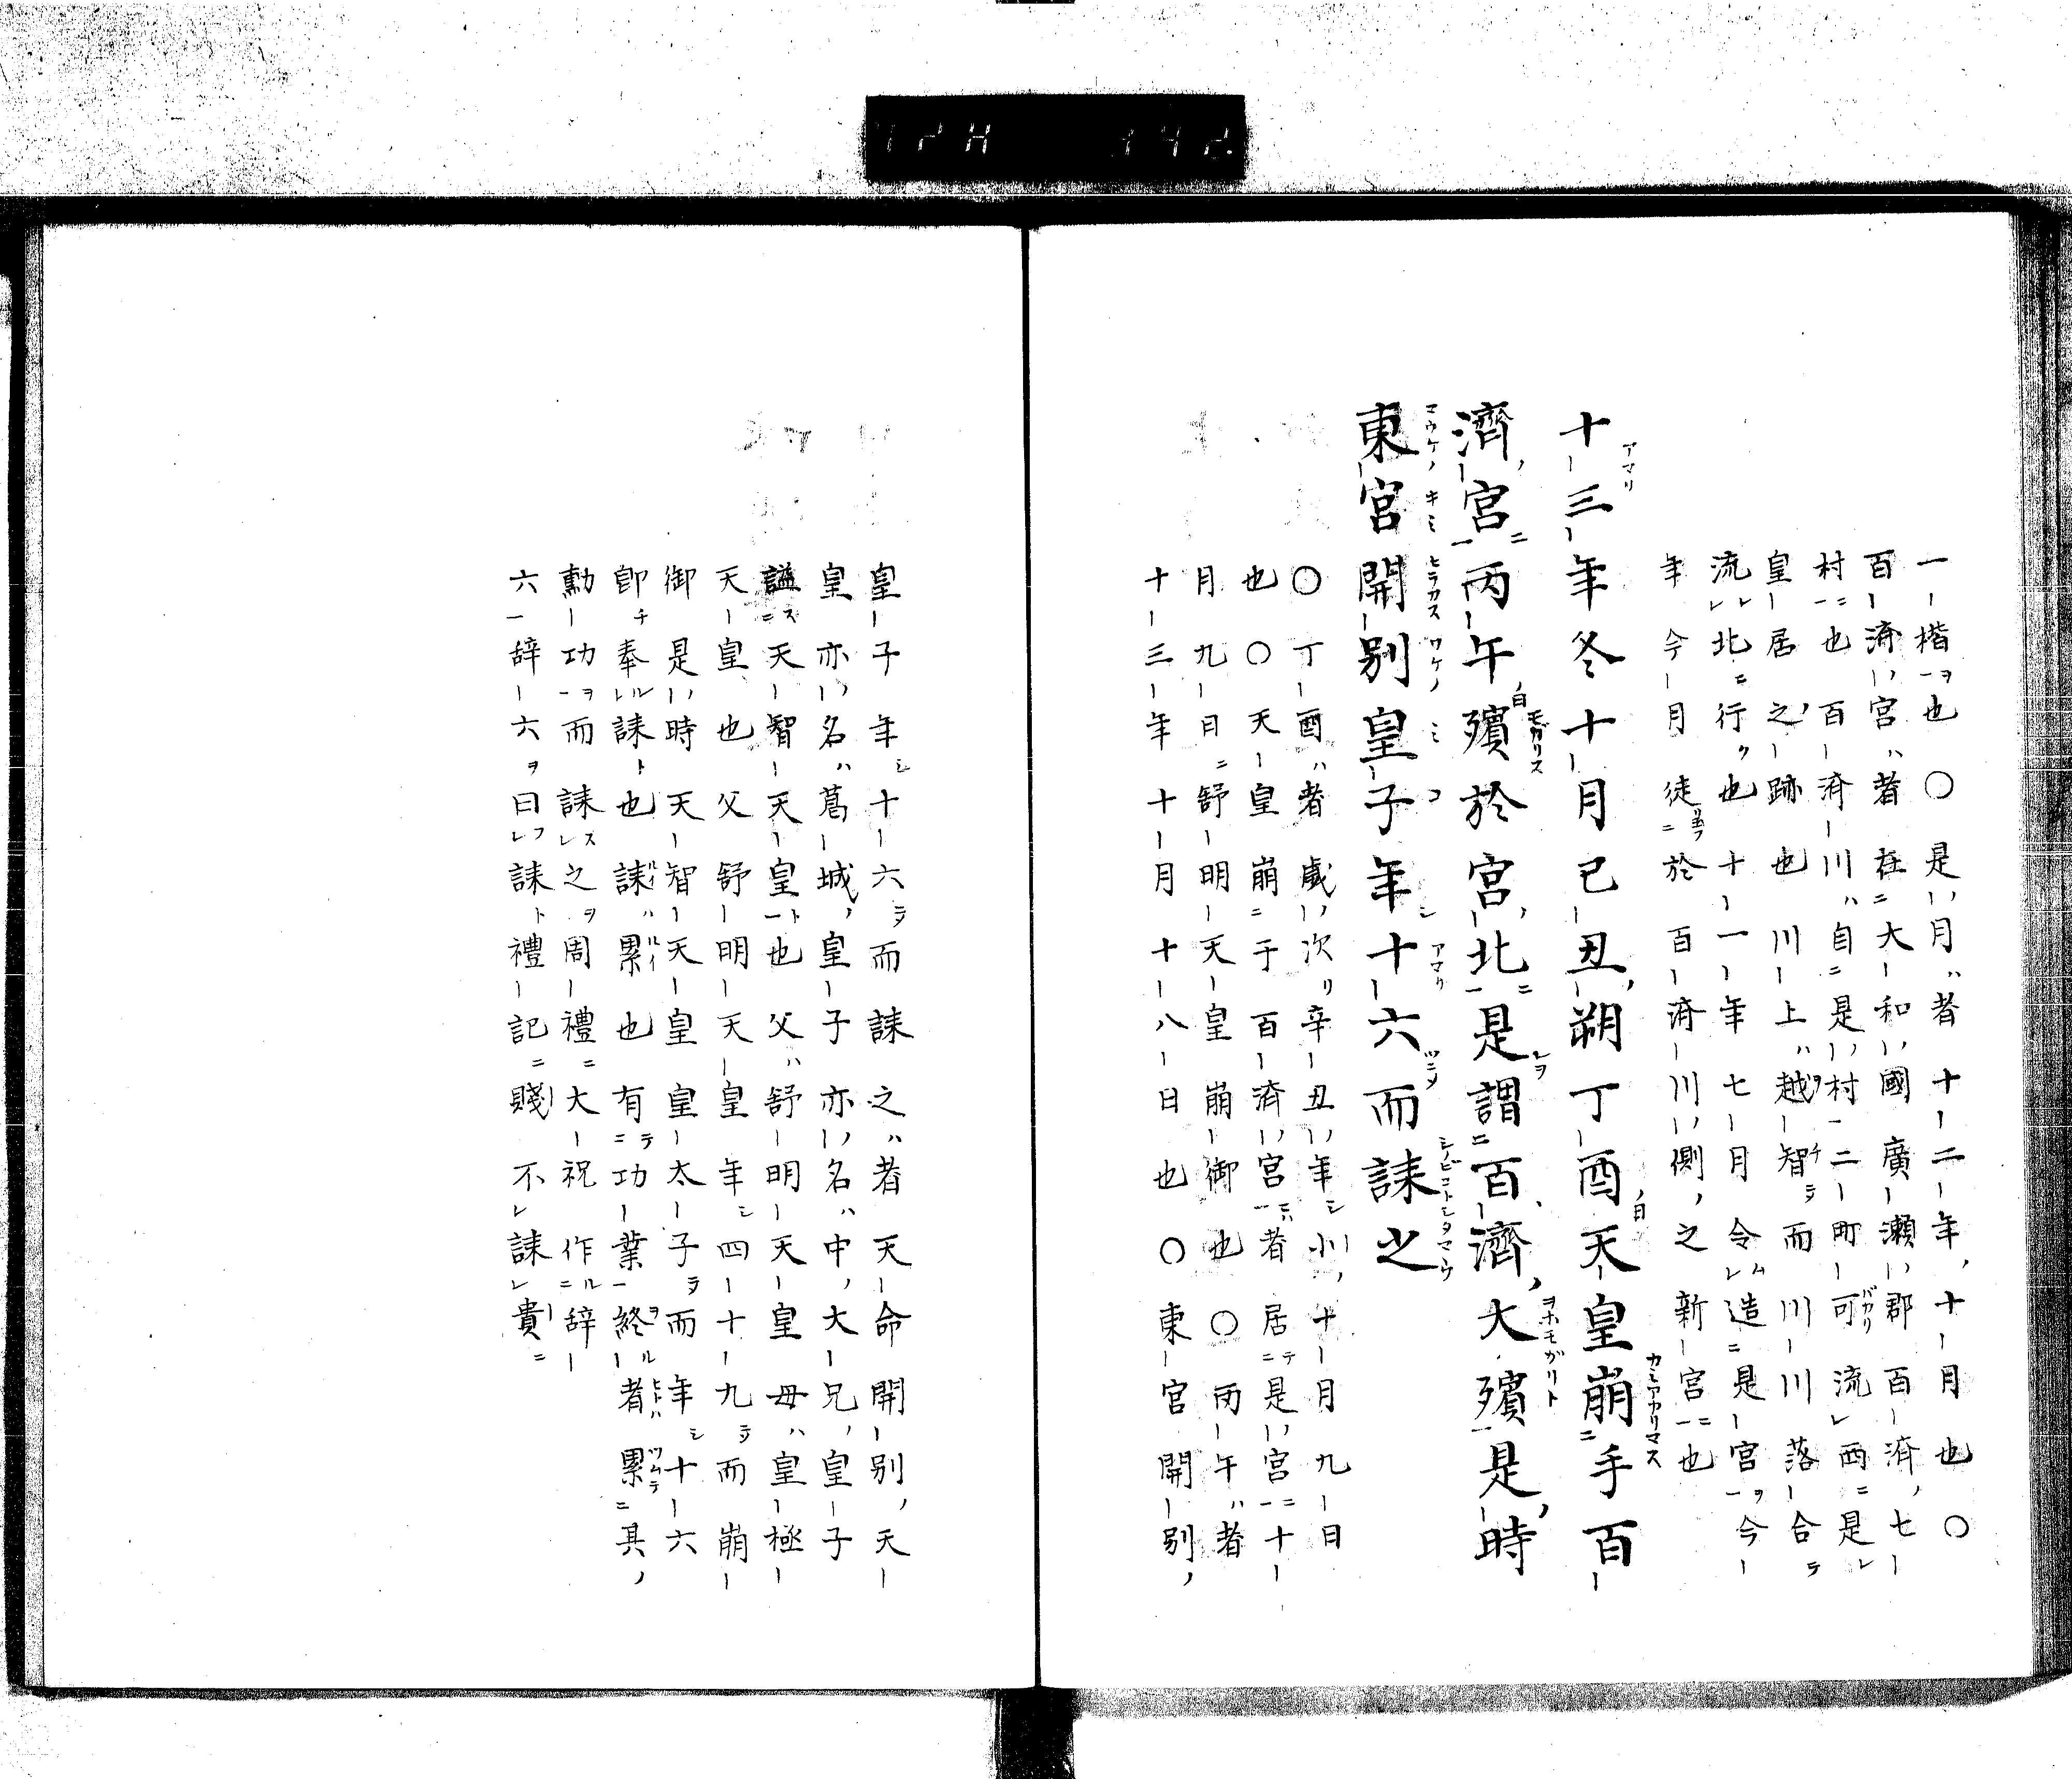 一楷也〇是月者十二年十月也〇
百済宮者在大和國廣瀬郡百済七
村也百済川自是村二町可流西是
皇居之跡也川上越智而川川落合
流北行也十一年七月令造是宮今
年今月徒於百済川側之新宮也
十三年冬十月己丑朔丁酉天皇崩于百
濟宮丙午殯於宮北是謂百濟大殯是時
東宮開別皇子年十六而誄之
〇丁酉者歳次辛丑年小十月九日
也〇天皇崩于百済宮者居是宮十
月九日舒明天皇崩御也〇丙午者
十三年十月十八日也〇東宮開別
皇子年十六而誄之者天命開別天
皇亦名葛城皇子亦名中大兄皇子
謚天智天皇也父舒明天皇母皇極
天皇也父舒明天皇年四十九而崩
御是時天智天皇皇太子而年十六
卽奉誄也誄累也有功業終者累其
勳功而誄之周禮大祝作辞
六辞六曰誄禮記賤不誄貴